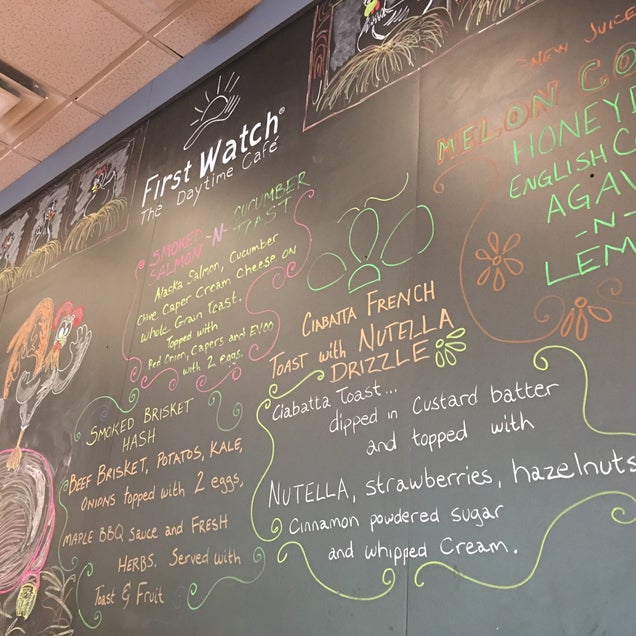 First Watch®
The Daytime Café
SMOKED
SALMON -N- CUCUMBER
TOAST
Alaska Salmon, Cucumber
Chive Caper Cream Cheese on
Whole Grain Toast.
Topped with
Red Onion, Capers and EVOO
with 2 eggs.
SMOKED BRISKET
HASH
BEEF BRISKET, POTATOS, KALE,
ONIONS topped with 2 eggs,
MAPLE BBQ Sauce and FRESH
HERBS. Served with
Toast & Fruit
CIABATTA FRENCH
TOAST with NUTELLA
DRIZZLE
Ciabatta Toast...
dipped in Custard batter
and topped with
NUTELLA, strawberries, hazelnuts
Cinnamon powdered sugar
and whipped Cream.
NEW JUICE
MELON
HONEYD
ENGLISH C
AGAV
-N-
LEM